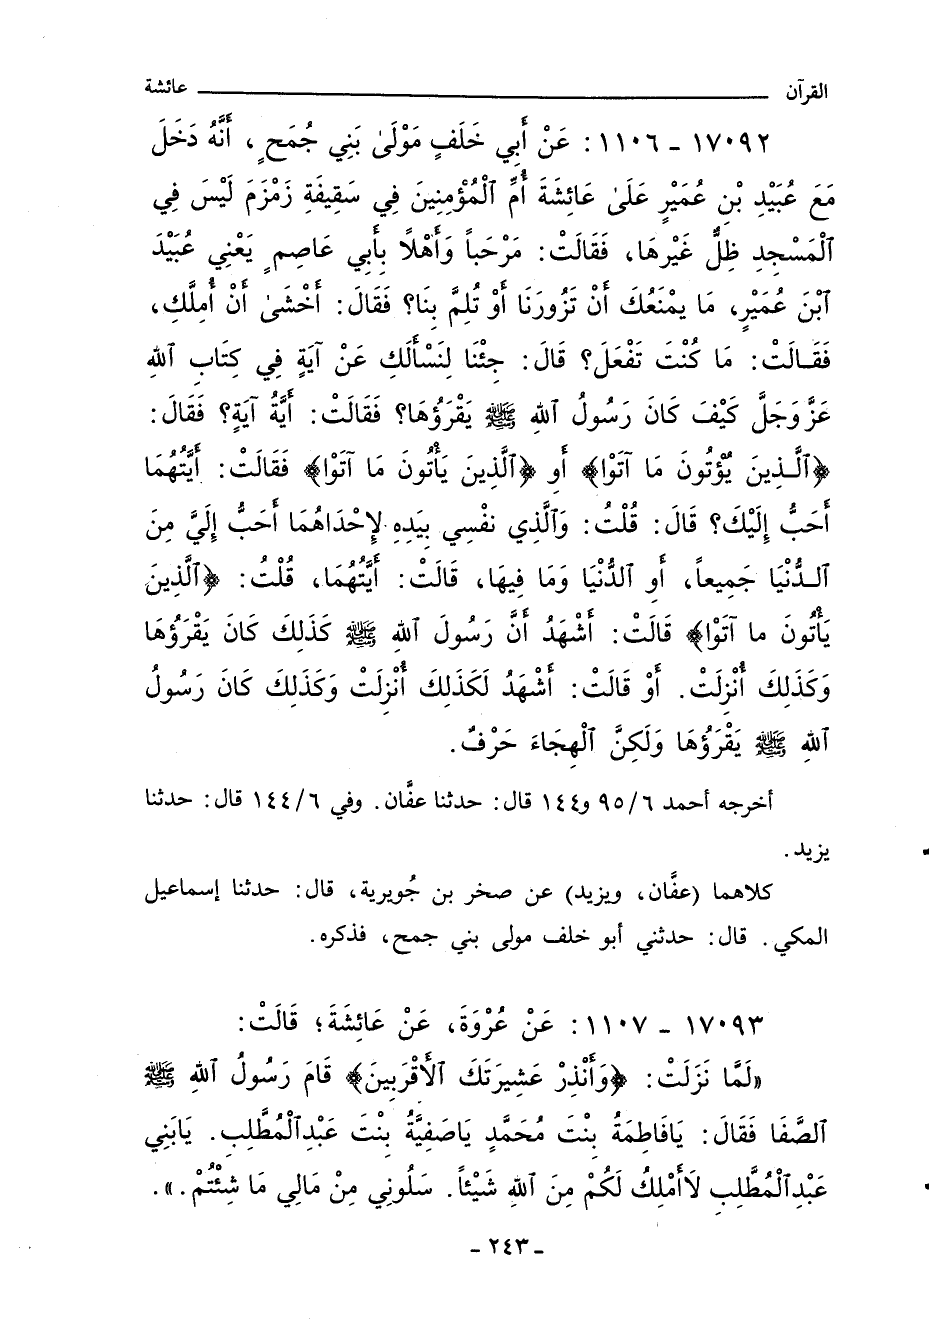 القرآن ــــــــــ عائشة
١٧٠٩٢ - ١١٠٦ : عَنْ أَبِي خَلَفٍ مَوْلَىٰ بَنِي جُمَحٍ ، أَنَّهُ دَخَلَ
مَعَ عُبَيْدِ بْنِ عُمَيْرٍ عَلَىٰ عَائِشَةَ أُمِّ ٱلْمُؤْمِنِينَ فِي سَقِيفَةِ زَمْزَمَ لَيْسَ فِي
ٱلْمَسْجِدِ ظِلٌّ غَيْرهَا، فَقَالَتْ: مَرْحَباً وَأَهْلاً بِأَبِي عَاصِمٍ يَعْنِي عُبَيْدَ
ٱبْنَ عُمَيْرٍ، مَا يمْنَعُكَ أَنْ تَزُورَنَا أَوْ تُلِمَّ بِنَا؟ فَقَالَ: أَخْشَىٰ أَنْ أُمِلَّكِ،
فَقَـالَتْ: مَا كُنْتَ تَفْعَلَ؟ قَالَ: جِئْنَا لِنَسْأَلَكِ عَنْ آيَةٍ فِي كِتَابِ ٱللهِ
عَزَّ وَجَلَّ كَيْفَ كَانَ رَسُولُ ٱللهِ ﷺ يَقْرَؤُهَا؟ فَقَالَتْ: أَيَّةُ آيَةٍ؟ فَقَالَ:
﴿ٱلَّـذِينَ يُؤْتُونَ مَا آتَوْا﴾ أَو ﴿ٱلَّذِينَ يَأْتُونَ مَا آتَوْا﴾ فَقَالَتْ: أَيَّتُهُمَا
أَحَبُّ إِلَيْكَ؟ قَالَ: قُلْتُ: وَٱلَّذِي نفْسِي بِيَدِهِ لإِحْدَاهُمَا أَحَبُّ إِلَيَّ مِنَ
ٱلـدُّنْيَا جَمِيعاً، أَوِ ٱلدُّنْيَا وَمَا فِيهَا، قَالَتْ: أَيَّتُهُمَا، قُلْتُ: ﴿ٱلَّذِينَ
يَأْتُونَ ما آتَوْا﴾ قَالَتْ: أَشْهَدُ أَنَّ رَسُولَ ٱللهِ ﷺ كَذَلِكَ كَانَ يَقْرَؤُهَا
وَكَذَلِكَ أُنْزِلَتْ. أَوْ قَالَتْ: أَشْهَدُ لَكَذَلِكَ أُنْزِلَتْ وَكَذَلِكَ كَانَ رَسُولُ
ٱللهِ ﷺ يَقْرَؤُهَا وَلَكِنَّ ٱلْهِجَاءَ حَرْفٌ.
أخرجه أحمد ٩٥/٦ و١٤٤ قال: حدثنا عفَّان. وفي ١٤٤/٦ قال: حدثنا
يزيد.
كلاهما (عفَّان، ويزيد) عن صخر بن جُويرية، قال: حدثنا إسماعيل
المكي. قال: حدثني أبو خلف مولى بني جمح، فذكره.
١٧٠٩٣ - ١١٠٧ : عَنْ عُرْوَةَ، عَنْ عَائِشَةَ؛ قَالَتْ:
«لَمَّا نَزَلَتْ: ﴿وَأَنْذِرْ عَشِيرَتَكَ ٱلأَقْرَبِينَ﴾ قَامَ رَسُولُ ٱللهِ ﷺ
ٱلصَّفَا فَقَالَ: يَافَاطِمَةُ بِنْتَ مُحَمَّدٍ يَاصَفِيَّةُ بِنْتَ عَبْدِٱلْمُطَّلِبِ. يَابَنِي
عَبْدِٱلْمُطَّلِبِ لَاأَمْلِكُ لَكُمْ مِنَ ٱللهِ شَيْئاً. سَلُونِي مِنْ مَالِي مَا شِئْتُمْ.».
- ٢٤٣ -